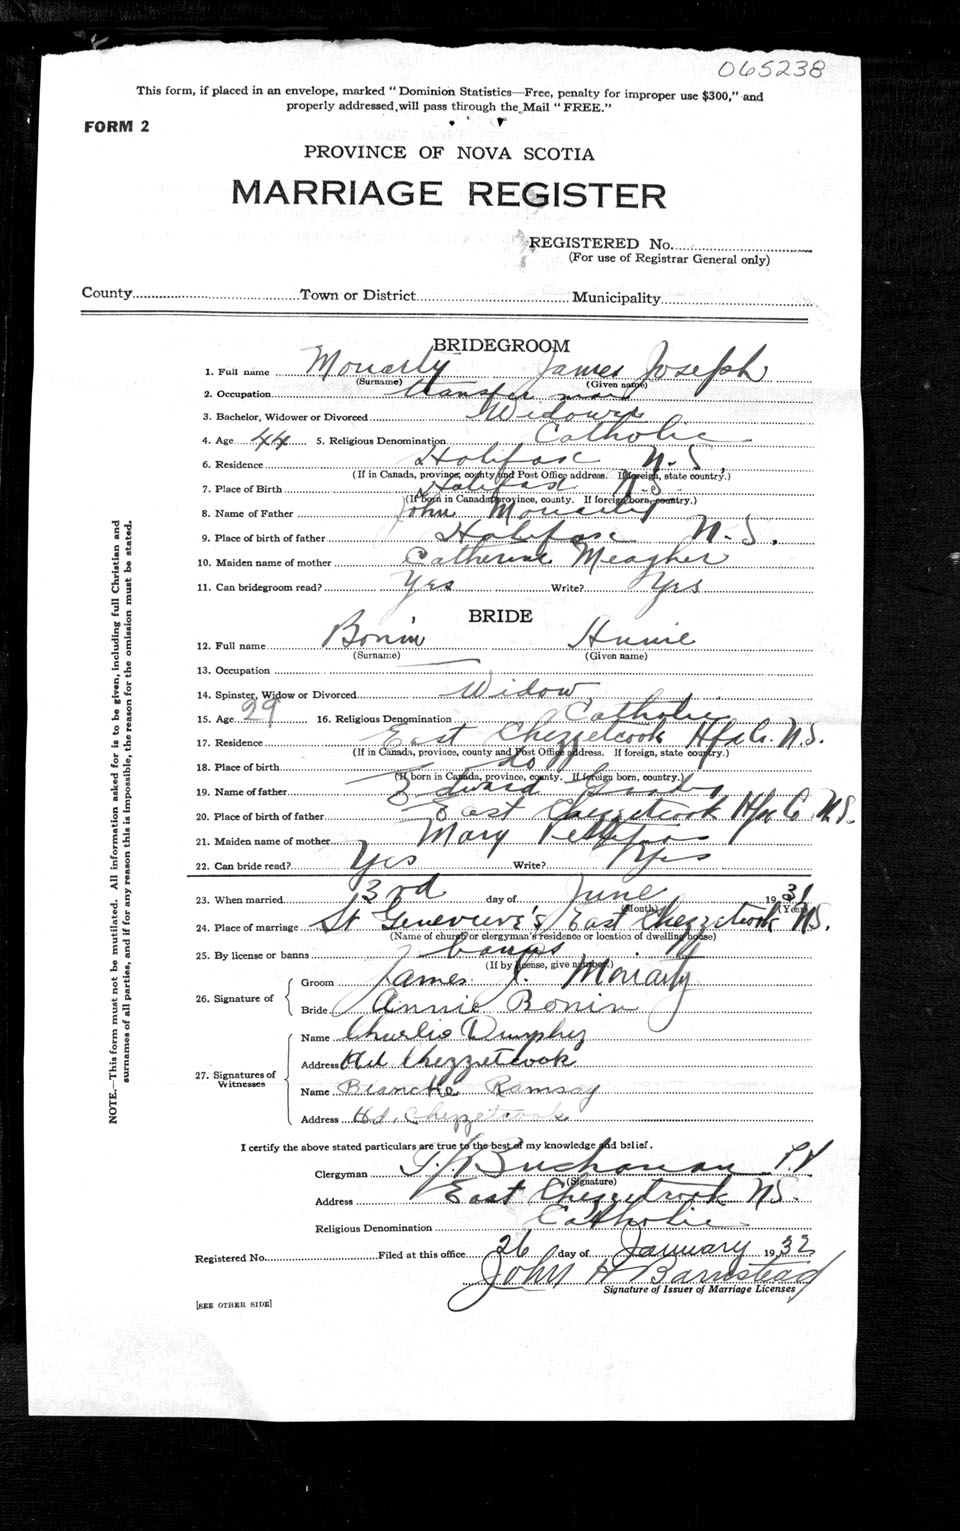 065238
This form, if placed in an envelope, marked "Dominion Statistics—Free, penalty for improper use $300," and
properly addressed, will pass through the Mail "FREE."
FORM 2
PROVINCE OF NOVA SCOTIA
MARRIAGE REGISTER
REGISTERED No.
(For use of Registrar General only)
County Town or District Municipality
BRIDEGROOM
1. Full name Moriarty James Joseph
(Surname) (Given name)
2. Occupation transfer man
3. Bachelor, Widower or Divorced Widower
4. Age 44 5. Religious Denomination Catholic
6. Residence Halifax N.S.
(If in Canada, province, county and Post Office address. If foreign, state country.)
7. Place of Birth Halifax N.S
(If born in Canada, province, county. If foreign born, country.)
8. Name of Father John Moriarty
9. Place of birth of father Halifax N.S.
10. Maiden name of mother Catherine Meagher
11. Can bridegroom read? Yes Write? Yes
BRIDE
12. Full name Bonin Annie
(Surname) (Given name)
13. Occupation
14. Spinster, Widow or Divorced Widow
15. Age 29 16. Religious Denomination Catholic
17. Residence East Chezzetcook Hfx Co. N.S.
(If in Canada, province, county and Post Office address. If foreign, state country.)
18. Place of birth do
(If born in Canada, province, county. If foreign born, country.)
19. Name of father Edward
20. Place of birth of father East Chezzetcook Hfx C N.S.
21. Maiden name of mother Mary Pettipas
22. Can bride read? Yes Write? Yes
23. When married 3rd day of June 1931
(Month) (Year)
24. Place of marriage St Genevieve's East Chezzetcook N.S.
(Name of church or clergyman's residence or location of dwelling house)
25. By license or banns banns
(If by license, give number.)
26. Signature of
Groom James J. Moriarty
Bride Annie Bonin
27. Signatures of Witnesses
Name Charlie Dumphy
Address Hd Chezzetcook
Name Blanche Ramsay
Address Hd. Chezzetcook
I certify the above stated particulars are true to the best of my knowledge and belief.
Clergyman Buchanan
(Signature)
Address East Chezzetcook N.S.
Religious Denomination Catholic
Registered No. Filed at this office 26 day of January 1932
John H Barnstead
Signature of Issuer of Marriage Licenses
[SEE OTHER SIDE]
NOTE.—This form must not be mutilated. All information asked for is to be given, including full Christian and
surnames of all parties, and if for any reason this is impossible, the reason for the omission must be stated.